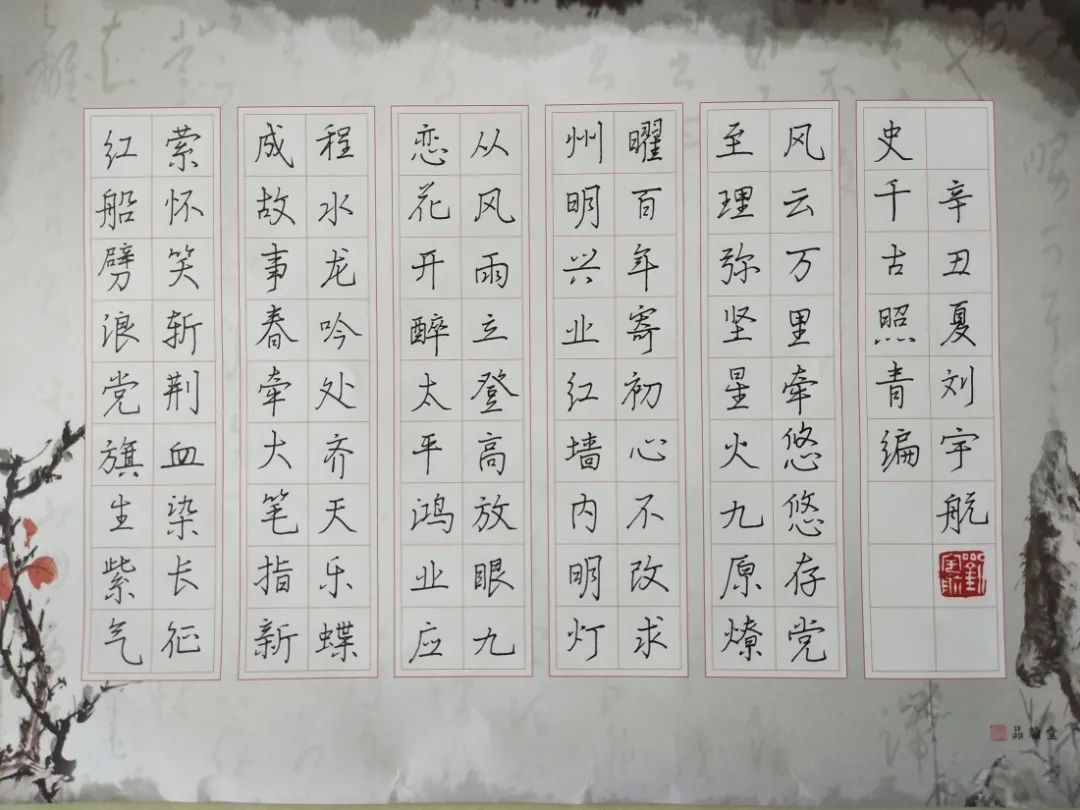 红船劈浪党旗生紫气
萦怀笑斩荆血染长征
成故事春牵大笔指新
程水龙吟处齐天乐蝶
恋花开醉太平鸿业应
从风雨立登高放眼九
州明兴业红墙内明灯
曜百年寄初心不改求
至理弥坚星火九原燎
风云万里牵悠悠存党
史千古照青编
辛丑夏刘宇航
品翰堂